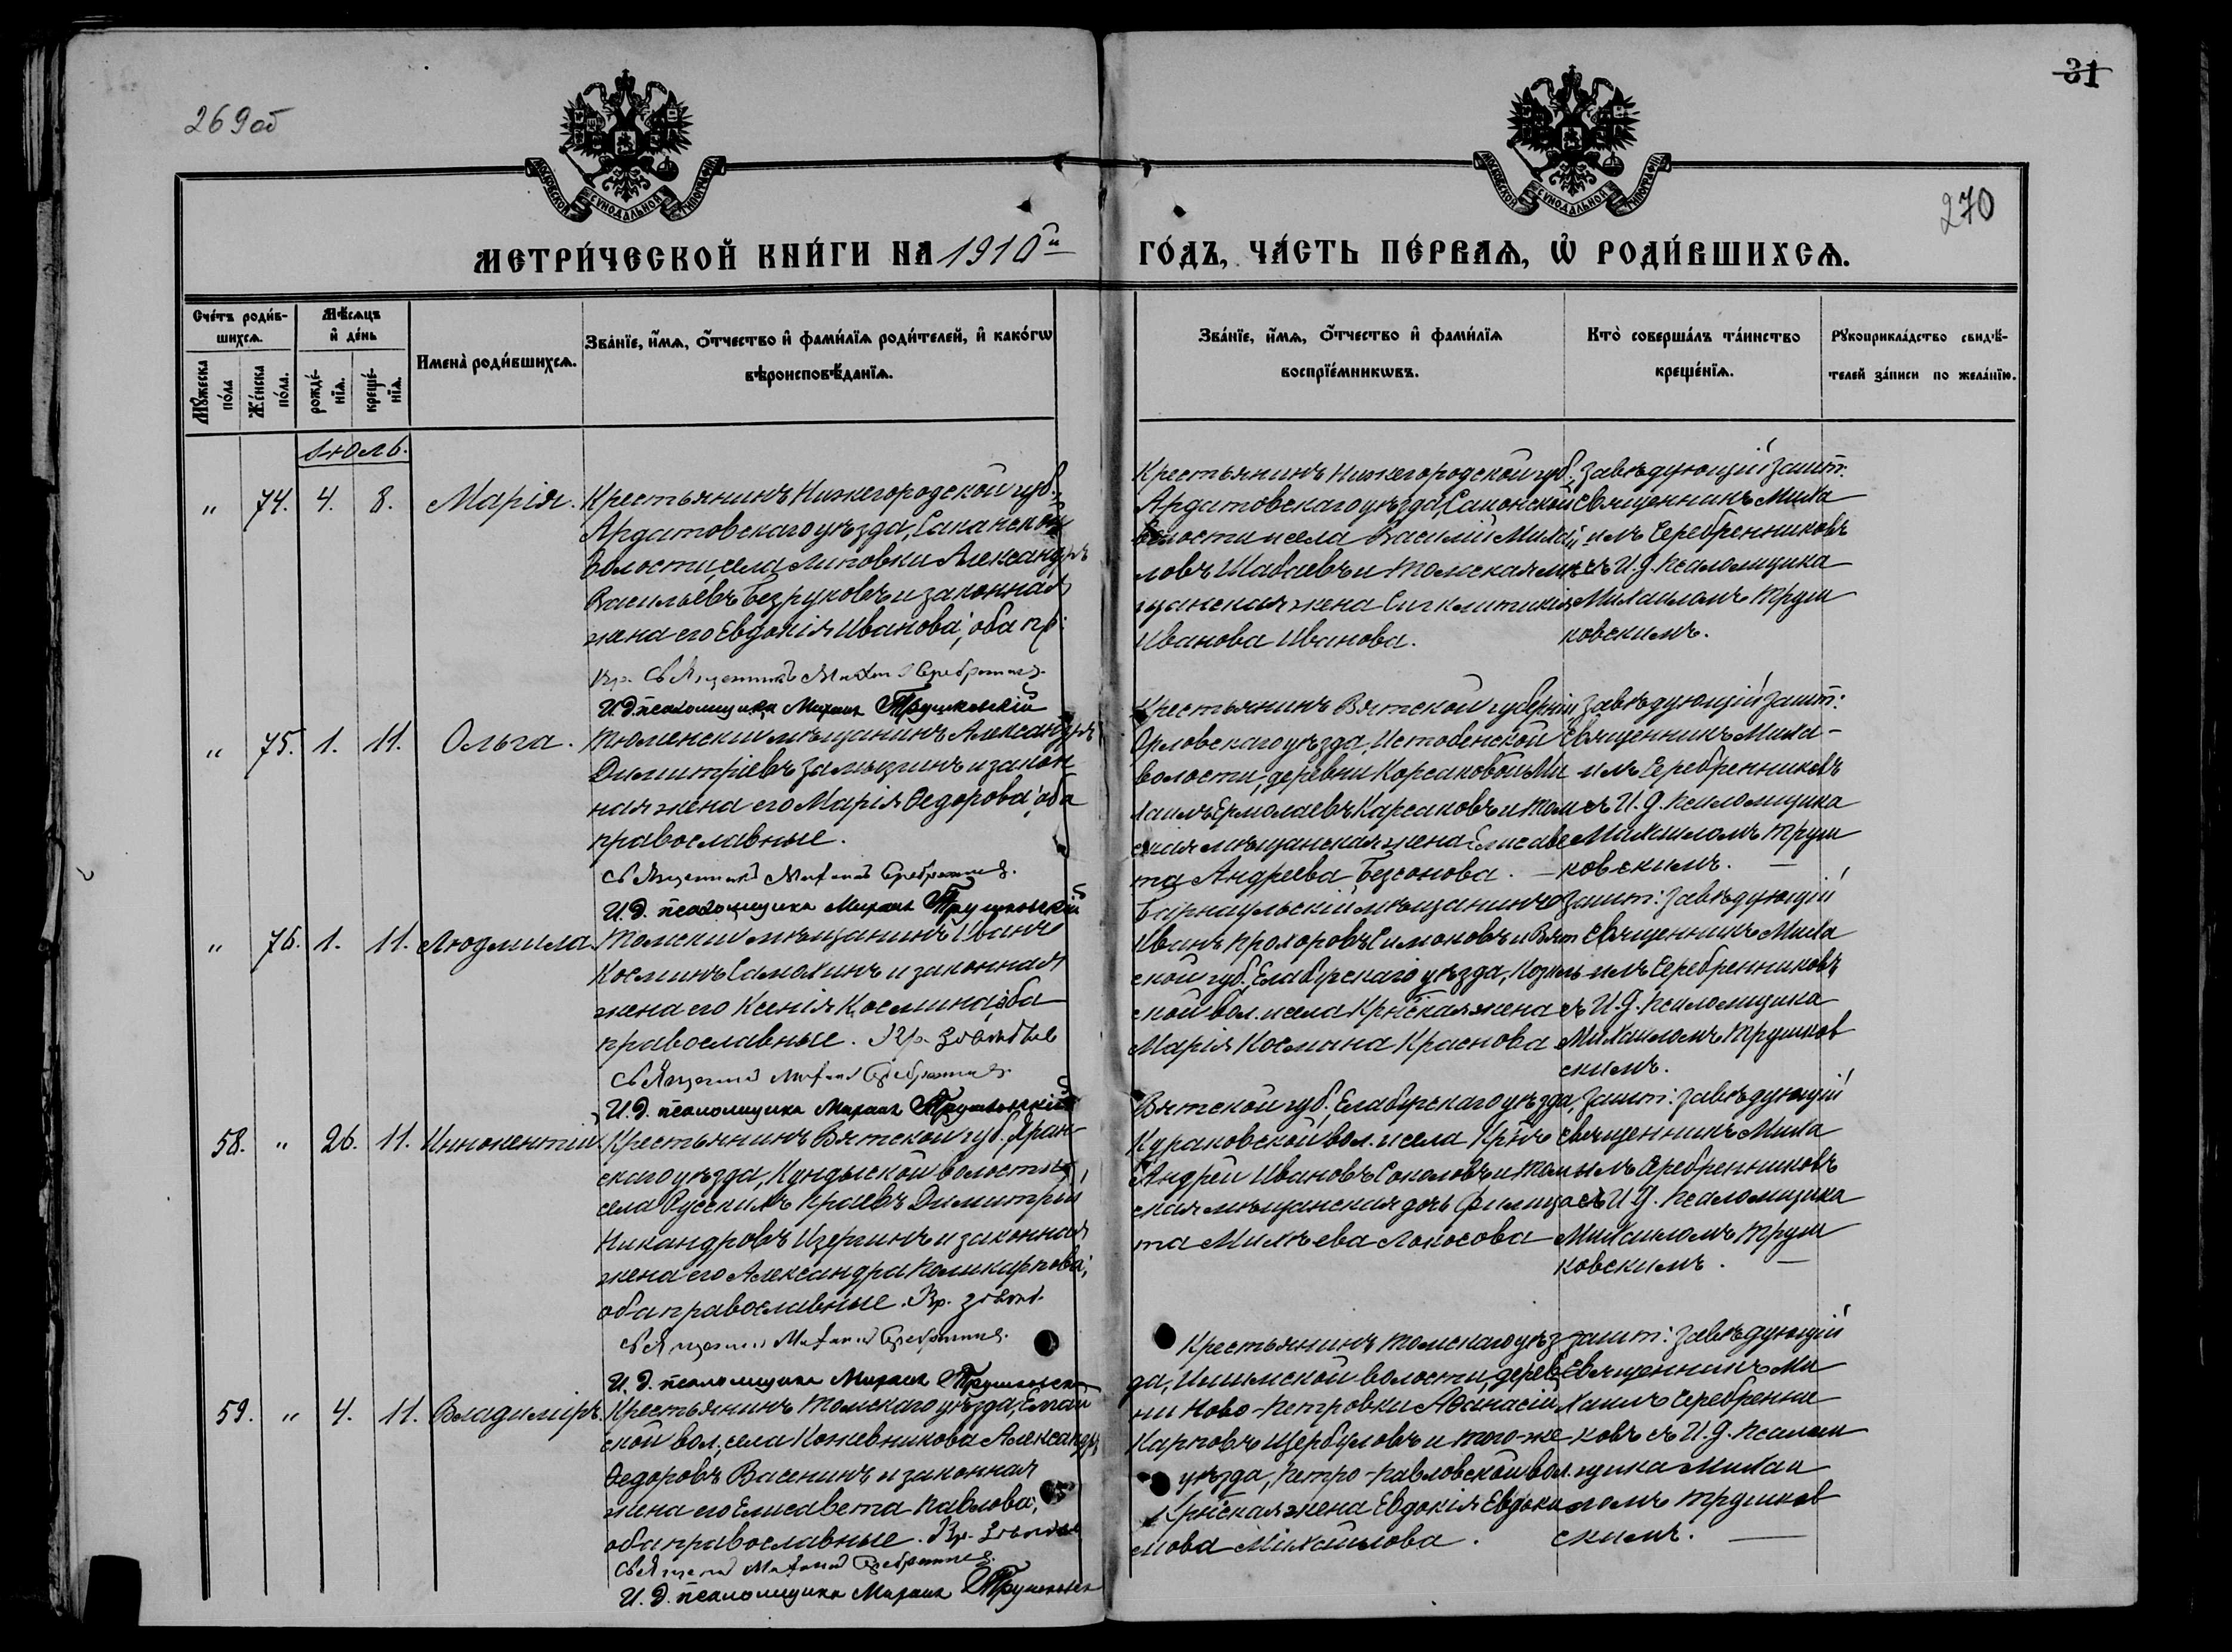 269 об
31
270
МОСКОВСКОЙ СѴНОДАЛЬНОЙ ТИПОГРАФІИ
МОСКОВСКОЙ СѴНОДАЛЬНОЙ ТИПОГРАФІИ
МЕТРИ́ЧЕСКОЙ КНИ́ГИ НА 1910й
ГО́ДЪ, ЧА́СТЬ ПЕ́РВАѦ, Ѡ҆ РОДИ́ВШИХСѦ.
Сче́тъ роди́в-
шихсѧ.
Мꙋ́жеска по́ла
Же́нска по́ла.
Мѣ́сѧцъ
и҆ де́нь
рожде́-
нїѧ.
креще́-
нїѧ.
Имена̀ роди́вшихсѧ.
Зва́нїе, и҆́мѧ, ѻ҆́тчество и҆ фами́лїѧ роди́телей, и҆ како́гѡ
вѣроисповѣ́данїѧ.
Зва́нїе, и҆́мѧ, ѻ҆́тчество и҆ фами́лїѧ
воспрїе́мникѡвъ.
Кто̀ соверша́лъ та́инство
креще́нїѧ.
Рꙋкоприкла́дство свидѣ́-
телей за́писи по жела́нїю.
Іюль.
" 74. 4. 8. Марія.
Крестьянинъ Нижегородской губ.,
Ардатовскаго уѣзда, Саканской
волости, села Липовки Александръ
Васильевъ Безруковъ и законная
жена его Евдокія Иванова; оба пр:
Кр. Священникъ Михаилъ Серебренниковъ
И.д. псаломщика Михаилъ Трушковскій
Крестьянинъ Нижегородской губ.,
Ардатовскаго уѣзда, Саконской
волости и села Василій Михай
ловъ Шабаевъ и Томская мѣ
щанская жена Сигклитикія
Иванова Иванова.
Завѣдующій зашт.
священникъ Миха
иломъ Серебренниковъ
съ И.д. псаломщика
Михаиломъ Труш
ковскимъ.
" 75. 1. 11. Ольга.
Тюменскій мѣщанинъ Александръ
Димитріевъ Замызгинъ и закон
ная жена его Марія Ѳедорова; оба
православные.
Священникъ Михаилъ Серебренниковъ
И.д. псаломщика Михаилъ Трушковскій
Крестьянинъ Вятской губерніи
Орловскаго уѣзда, Истобенской
волости, деревни Корсаковой Ми
хаилъ Ермолаевъ Карсаковъ и Том
ская мѣщанская жена Елисаве
та Андреева Безсонова. —
Завѣдующій зашт:
священникъ Миха-
илъ Серебренниковъ
съ И.д. псаломщика
Михаиломъ Труш
ковскимъ. —
" 76. 1. 11. Людмила.
Томскій мѣщанинъ Иванъ
Косминъ Самохинъ и законная
жена его Ксенія Космина; оба
православные. Кр.
Священникъ Михаилъ Серебренниковъ
И.д. псаломщика Михаилъ Трушковскій
Барнаульскій мѣщанинъ
Иванъ Прохоровъ Симоновъ и Вят
ской губ., Елабужскаго уѣзда, Козиль
ской вол. и села Кр҃нская жена
Марія Космина Краснова
Зашт: завѣдующій
священникъ Миха
илъ Серебренниковъ
съ И.д. псаломщика
Михаиломъ Трушков
скимъ.
58. " 26. 11. Иннокентій.
Крестьянинъ Вятской губ., Яран
скаго уѣзда, Кундыской волости,
села Русскихъ Краевъ Димитрій
Никандровъ Изергинъ и законная
жена его Александра Поликарпова;
оба православные. Кр.
Священникъ Михаилъ Серебренниковъ
И.д. псаломщика Михаилъ Трушковск
Вятской губ., Елабужскаго уѣзда,
Кураковской вол. и села Кр҃нъ
Андрей Ивановъ Соколовъ, и Том
ская мѣщанская дочь Филица
та Михѣева Лопосова
Зашт: завѣдующій
священникъ Миха
илъ Серебренниковъ
съ И.д. псаломщика
Михаиломъ Труш
ковскимъ. —
59. " 4. 11. Владиміръ.
Крестьянинъ Томскаго уѣзда, Елгай
ской вол., села Кожевникова Александръ
Ѳедоровъ Васенинъ и законная
жена его Елисавета Павлова;
оба православные. Кр.
Священникъ Михаилъ Серебренниковъ
И.д. псаломщика Михаилъ Трушковск
Крестьянинъ Томскаго уѣз
да, Ишимской волости, дерев
ни Ново-Петровки Аѳанасій
Карповъ Щербуловъ и того-же
уѣзда, Петро-Павловской вол.
Кр҃нская жена Евдокія Евдоки
мова Михайлова.
Зашт: завѣдующій
священникъ Ми
хаилъ Серебренни
ковъ съ И.д. псалом
щика Михаи
ломъ Трушков
скимъ. —